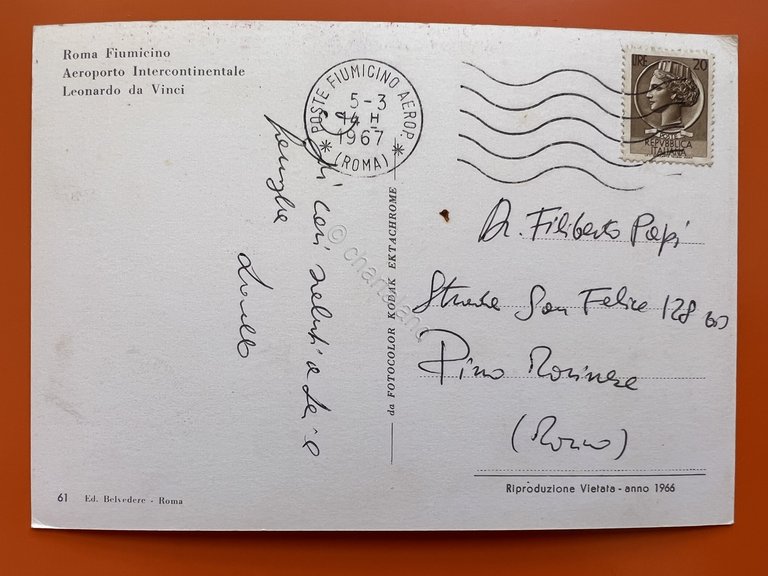 Roma Fiumicino
Aeroporto Intercontinentale
Leonardo da Vinci
POSTE FIUMICINO AEROP.
5-3
14 H
1967
(ROMA)
LIRE 20
POSTE
REPVBBLICA
ITALIANA
cari saluti a Lei e
famiglia
da FOTOCOLOR KODAK EKTACHROME
Dr. Filiberto Papi
Strada San Felice 128
Pino Torinese
(Torino)
61 Ed. Belvedere - Roma
Riproduzione Vietata - anno 1966